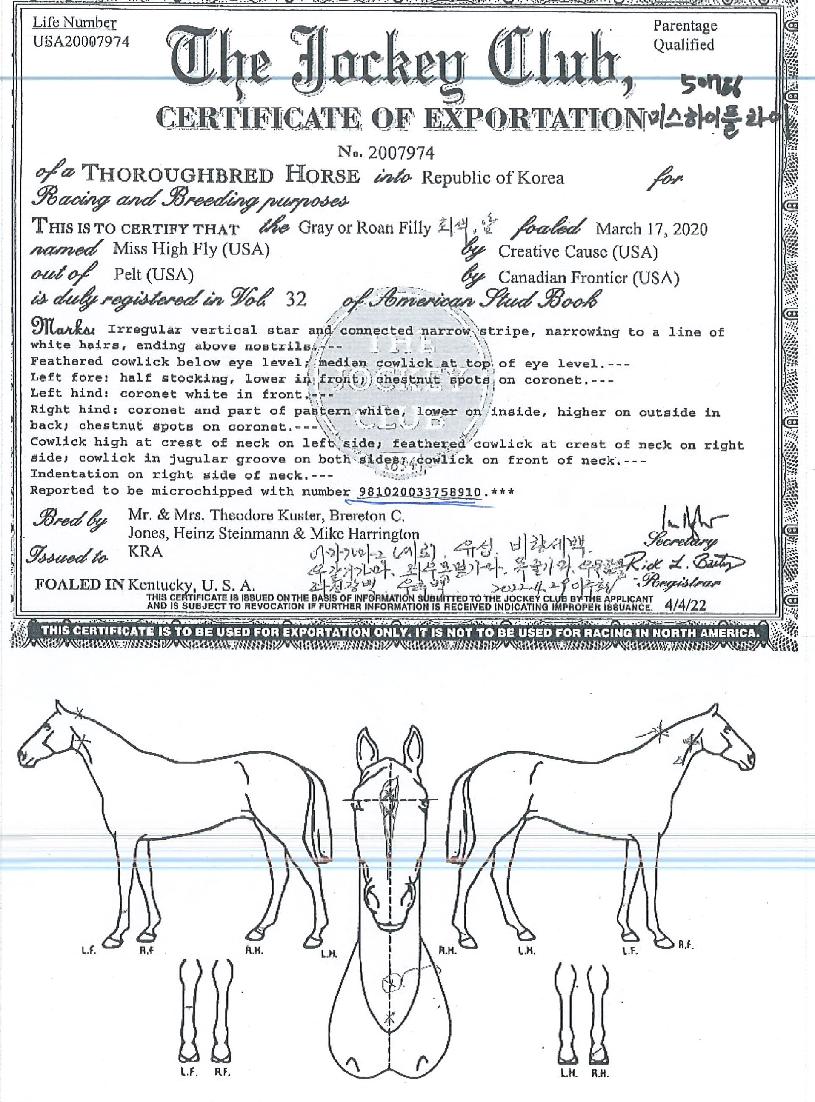 Life Number
USA20007974
Parentage
Qualified
The Jockey Club,
CERTIFICATE OF EXPORTATION
미스하이플라이
No. 2007974
of a THOROUGHBRED HORSE into Republic of Korea for
Racing and Breeding purposes
THIS IS TO CERTIFY THAT the Gray or Roan Filly 회색, 암 foaled March 17, 2020
named Miss High Fly (USA) by Creative Cause (USA)
out of Pelt (USA) by Canadian Frontier (USA)
is duly registered in Vol. 32 of American Stud Book
Marks: Irregular vertical star and connected narrow stripe, narrowing to a line of
white hairs, ending above nostrils.---
Feathered cowlick below eye level; median cowlick at top of eye level.---
Left fore: half stocking, lower in front; chestnut spots on coronet.---
Left hind: coronet white in front.---
Right hind: coronet and part of pastern white, lower on inside, higher on outside in
back; chestnut spots on coronet.---
Cowlick high at crest of neck on left side; feathered cowlick at crest of neck on right
side; cowlick in jugular groove on both sides; cowlick on front of neck.---
Indentation on right side of neck.---
Reported to be microchipped with number 981020033758910.***
THE
JOCKEY
CLUB
Bred by Mr. & Mrs. Theodore Kuster, Brereton C.
Jones, Heinz Steinmann & Mike Harrington
Secretary
Issued to KRA
Rick L. Bailey
Registrar
FOALED IN Kentucky, U. S. A.
THIS CERTIFICATE IS ISSUED ON THE BASIS OF INFORMATION SUBMITTED TO THE JOCKEY CLUB BY THE APPLICANT
AND IS SUBJECT TO REVOCATION IF FURTHER INFORMATION IS RECEIVED INDICATING IMPROPER ISSUANCE. 4/4/22
THIS CERTIFICATE IS TO BE USED FOR EXPORTATION ONLY. IT IS NOT TO BE USED FOR RACING IN NORTH AMERICA.
L.F. R.F R.H. L.H. R.H. L.H. L.F. R.F.
L.F. R.F. L.H. R.H.